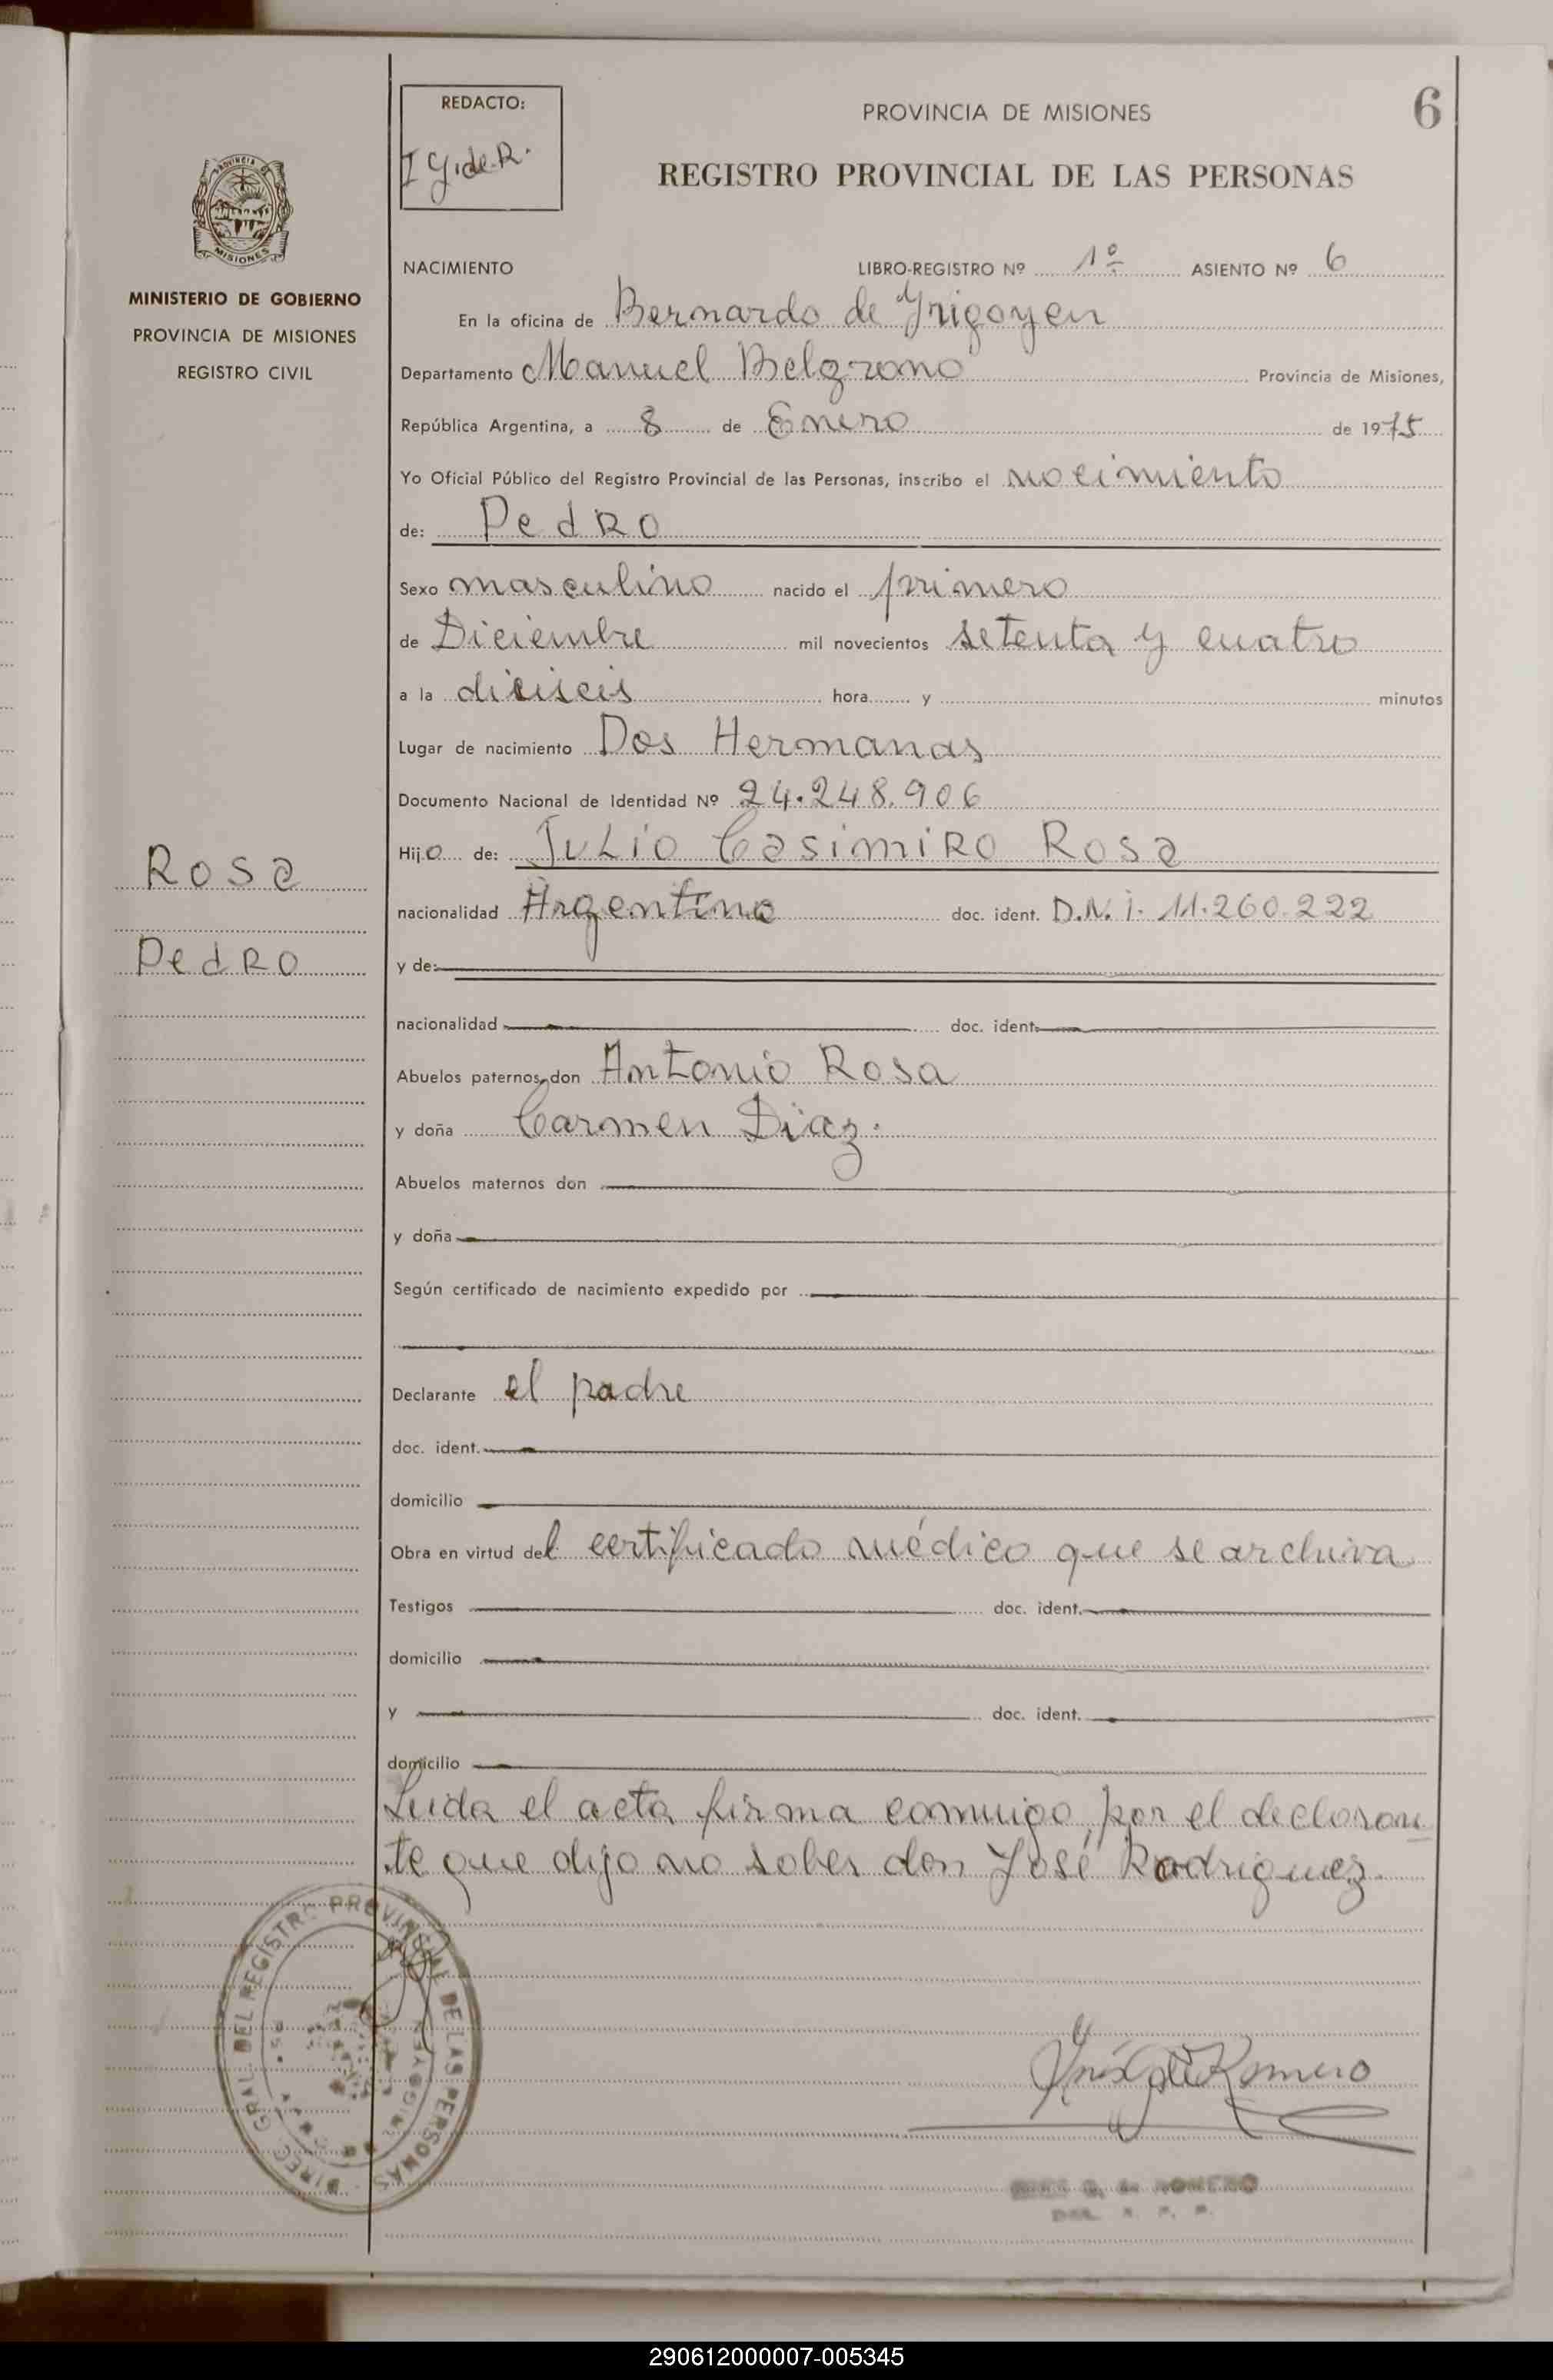 REDACTO:
I G. de R.
PROVINCIA DE MISIONES
6
REGISTRO PROVINCIAL DE LAS PERSONAS
PROVINCIA DE
MISIONES
MINISTERIO DE GOBIERNO
PROVINCIA DE MISIONES
REGISTRO CIVIL
NACIMIENTO LIBRO-REGISTRO Nº 1º ASIENTO Nº 6
En la oficina de Bernardo de Yrigoyen
Departamento Manuel Belgrano Provincia de Misiones,
República Argentina, a 8 de Enero de 1975
Yo Oficial Público del Registro Provincial de las Personas, inscribo el nacimiento
de: Pedro
Sexo masculino nacido el primero
de Diciembre mil novecientos setenta y cuatro
a la dieiseis hora y minutos
Lugar de nacimiento Dos Hermanas
Documento Nacional de Identidad Nº 24.248.906
Hijo de: Julio Casimiro Rosa
Rosa
nacionalidad Argentino doc. ident. D.N.i. 11.260.222
Pedro
y de:
nacionalidad doc. ident.
Abuelos paternos, don Antonio Rosa
y doña Carmen Diaz.
Abuelos maternos don
y doña
Según certificado de nacimiento expedido por
Declarante el padre
doc. ident.
domicilio
Obra en virtud del certificado médico que se archiva
Testigos doc. ident.
domicilio
y doc. ident.
domicilio
Leida el acta firma conmigo, por el declaran
te que dijo no saber don José Rodriguez.
DIREC. GRAL. DEL REGISTRO PROVINCIAL DE LAS PERSONAS
Inés G de Romero
INES G. de ROMERO
290612000007-005345